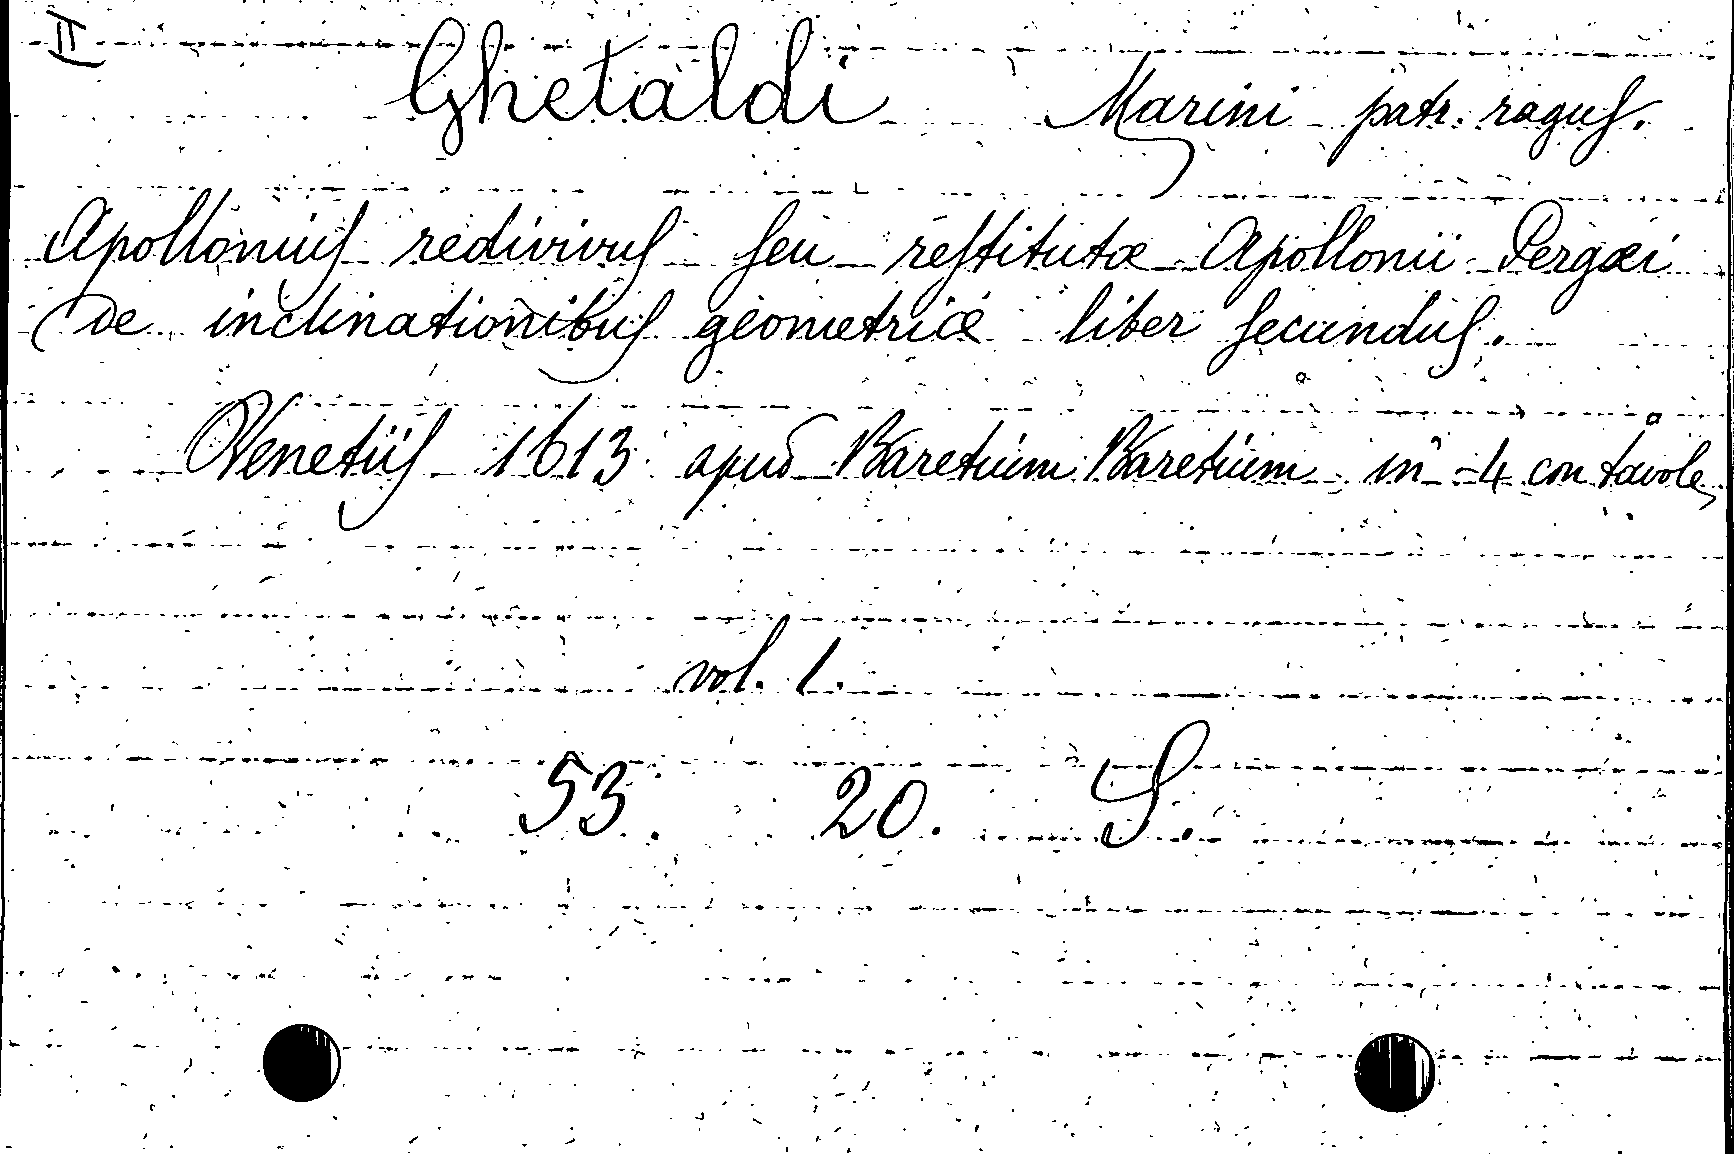 II
Ghetaldi Marini patr. ragus.
Apollonius redivivus seu restitutæ Apollonii Pergæi
de inclinationibus geometriæ liber secundus.
Venetiis 1613 apud Baretium Baretium in -4° con tavole
vol. 1.
53. 20. S.